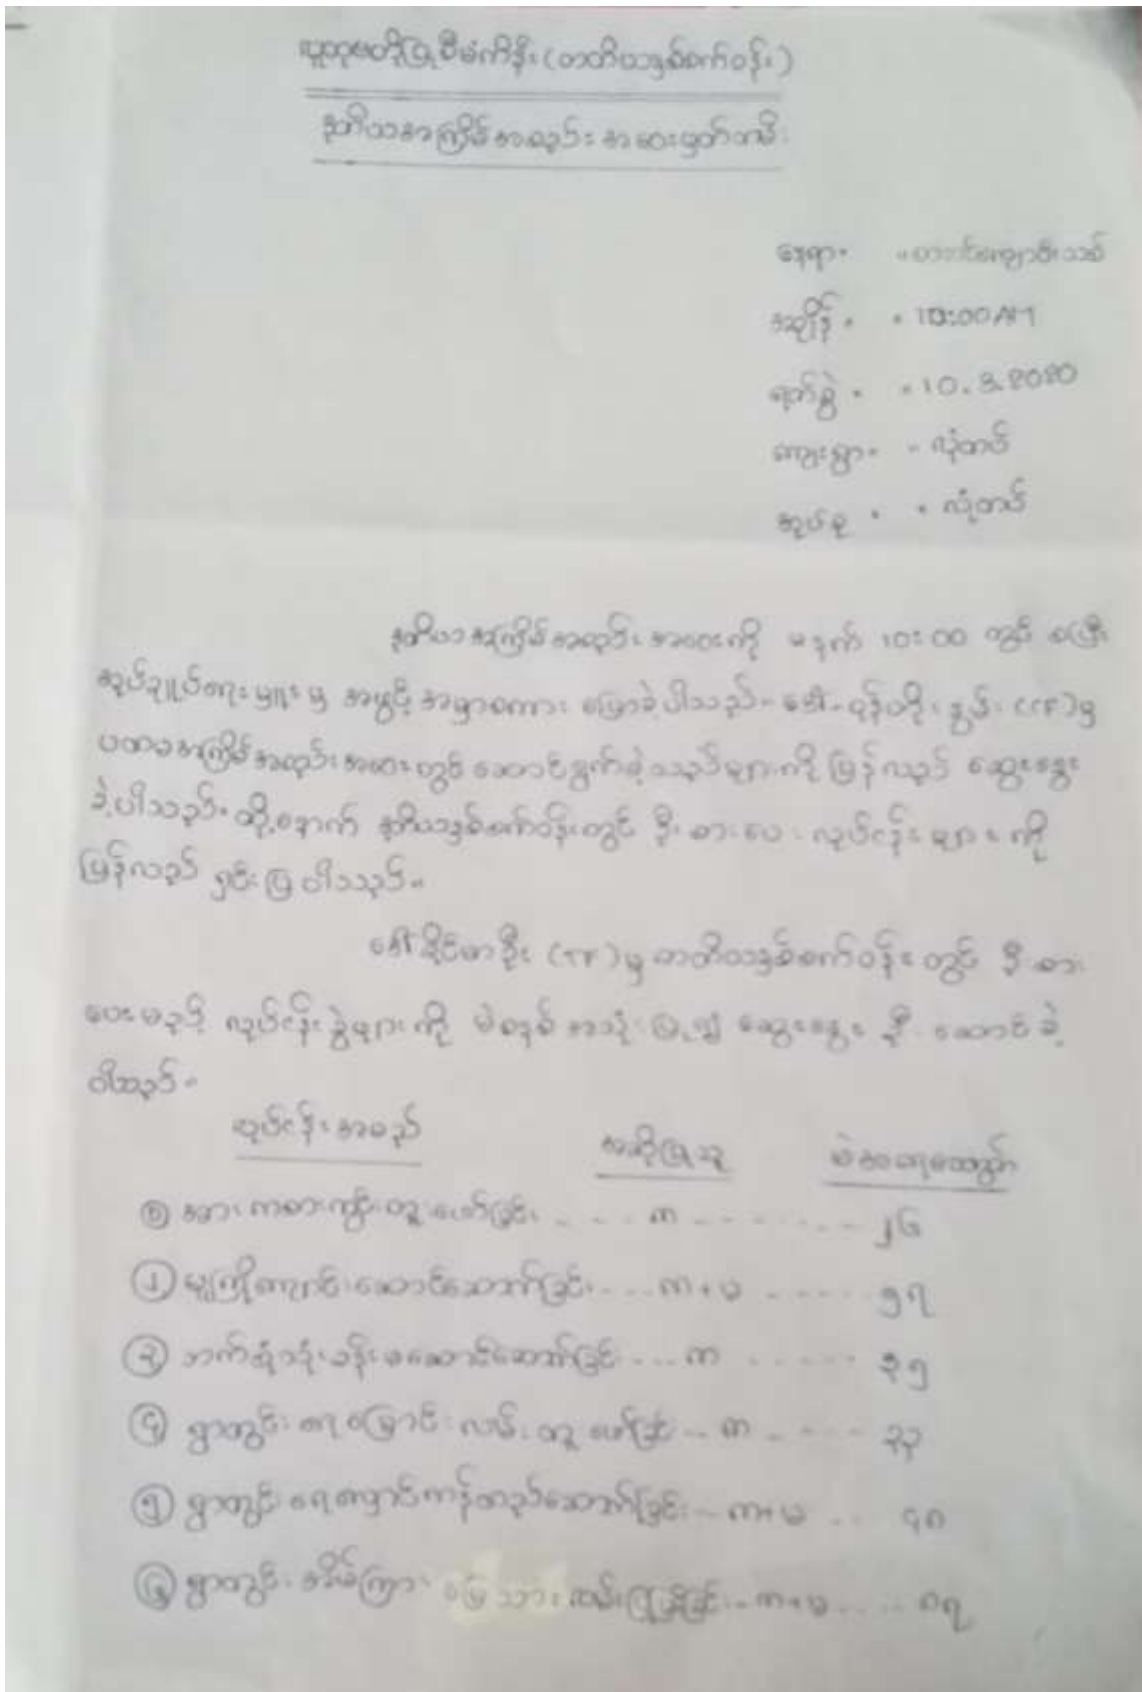 လူထုဗဟိုပြုစီမံကိန်း (တတိယနှစ်စက်ဝန်း)
ဒုတိယအကြိမ်အစည်းအဝေးမှတ်တမ်း
နေရာ။ ။
အချိန်။ ။ 10:00AM
ရက်စွဲ။ ။ 10.3.2020
ကျေးရွာ။ ။ လုံတပ်
အုပ်စု။ ။ လုံတပ်
ဒုတိယအကြိမ်အစည်းအဝေးကို မနက် ၁၀:၀၀ တွင် စပြီး
အုပ်ချုပ်ရေးမှူးမှ အဖွင့်အမှာစကား ပြောခဲ့ပါသည်။ ဒေါ် (CF) မှ
ပထမအကြိမ်အစည်းအဝေးတွင် ဆောင်ရွက်ခဲ့သည်များကို ပြန်လည် ဆွေးနွေး
ခဲ့ပါသည်။ ထို့နောက် ဒုတိယနှစ်စက်ဝန်းတွင် ဦးစားပေး လုပ်ငန်းများကို
ပြန်လည် ရှင်းပြပါသည်။
ဒေါ် (TF) မှ တတိယနှစ်စက်ဝန်းတွင် ဦးစား
ပေးမည့် လုပ်ငန်းခွဲများကို မဲစနစ် အသုံးပြု၍ ဆွေးနွေး ဦးဆောင်ခဲ့
ပါသည်။
လုပ်ငန်းအမည် အဆိုပြုသူ မဲအရေအတွက်
၁ အားကစားကွင်းတူးဖော်ခြင်း - - - - က - - - - - - - ၂၆
၂ မူကြိုကျောင်းဆောင်ဆောက်ခြင်း - - - က + မ - - - - - ၅၇
၃ ဘက်စုံသုံးခန်းမဆောင်ဆောက်ခြင်း - - - က - - - - - - ၃၅
၄ ရွာတွင်း ရေမြောင်း လမ်း တူးဖော်ခြင်း - - က - - - - - ၃၃
၅ ရွာတွင်း ရေလှောင်ကန်တည်ဆောက်ခြင်း - - က+မ - - ၄၈
၆ ရွာတွင်း အိမ်ကြား မြေသားလမ်းပြုပြင်ခြင်း - - က+မ - - - - ၈၇